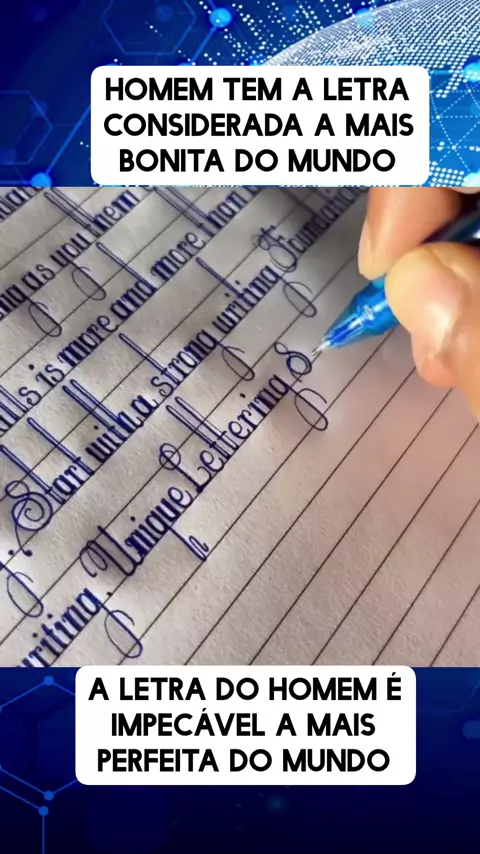 HOMEM TEM A LETRA
CONSIDERADA A MAIS
BONITA DO MUNDO
as you them
is more and more than
Start with a strong writing
writing. Unique Lettering
A LETRA DO HOMEM É
IMPECÁVEL A MAIS
PERFEITA DO MUNDO